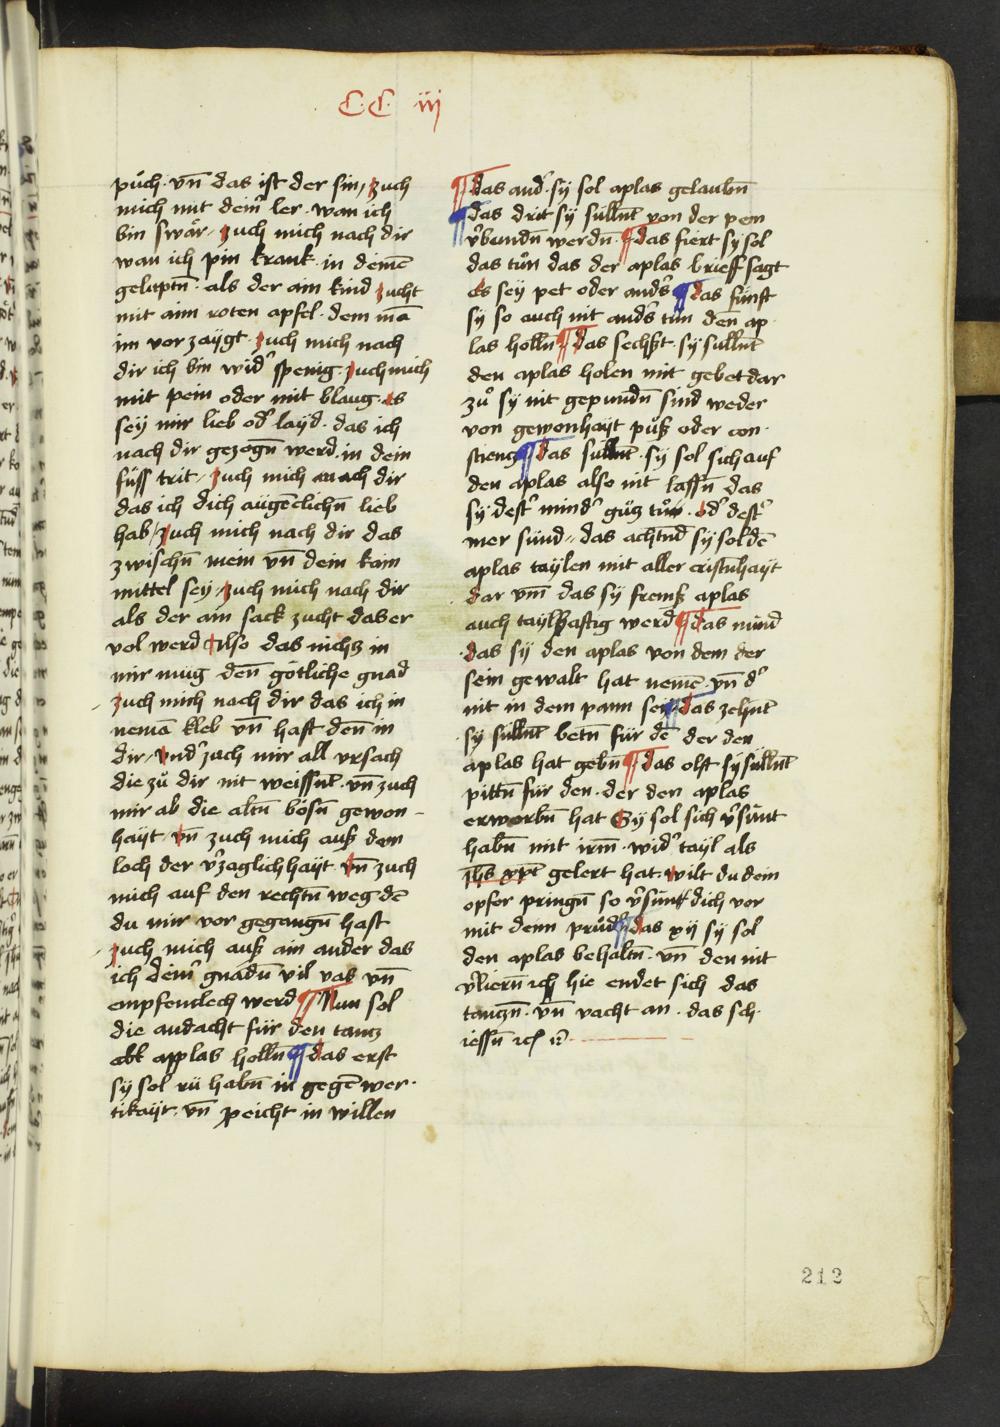 CC iij
puͦch · vn̄ das ist der sin / zuch
mich mit deinͬ ler · wan ich
bin swär · zuch mich nach dir
wan ich pin krank · in deinē
geluptn̄ · als der ain kind zucht
mit aim roten apfel · dem mā
im vor zaygt · zuch mich nach
dir ich bin widͬ spenig · zuch mich
mit pein oder mit blaug · es
sey mir lieb odͬ layd · das ich
nach dir gezogn̄ werd · in dein
fuͤss trit / zuch mich nach dir
das ich dich augēclichn̄ lieb
hab / zuch mich nach dir das
zwischn̄ mein vn̄ dein kain
mittel sey / zuch mich nach dir
als der ain sack zucht das er
vol werd Also das nichz in
mir mug · den̄ götliche gnad
zuch mich nach dir das ich in
nemā kleb vn̄ haft · den̄ in
dir / vndͬ zuch mir all vrsach
die zuͦ dir nit weissnt̄ · vn̄ zuch
mir ab die altn̄ bösn̄ gewon-
hayt · vn̄ zuch mich auß dem
loch der vͬzaglichhayt · vn̄ zuch
mich auf den rechtn̄ weg dē
du mir vor gegangn̄ hast
zuch mich auß ain ander das
ich deinͬ gnadn̄ vil vas vn̄
empfenclech werd ¶ Nun sol
die andacht für den tancz
abt applas holln̄ ¶ das erst
sy sol rü habn̄ in gegēwer ·
tikayt · vn̄ peicht in willen
¶ das andͬ · sy sol aplas gelaubn̄
¶ das drit sy süllnt̄ von der pein
vͬbundn̄ werdn̄ · ¶ das fiert sy sol
das tuͦn das der aplas brieff sagt
es sey pet oder andͬs ¶ das fünft
sy so auch nit andͬs tuͦn den ap ·
las holln̄ ¶ das sechßt · sy sullnt̄
den aplas holen mit gebet dar
zuͦ sy nit gepundn̄ sind weder
von gewonhayt puͦß oder con ·
¶ das · sy sol sich auf
den aplas also nit lassn̄ das
sy destͬ mindͬ guͦz tuͦn · odͬ destͬ
mer sünd / das achtnd̄ sy sol dē
aplas taylen mit aller cristn̄hayt
dar vm̄ das sy fremß aplas
auch taylhaftig werd ¶ das nund
das sy den aplas von dem der
sein gewalt hat nemē · vn̄ dͬ
nit in dem pann sey ¶ das zehnt̄
sy süllnt̄ betn̄ für dē der den
aplas hat gebn̄ ¶ das olft sy süllnt̄
pittn̄ für den · der den aplas
erworbn̄ hat Sy sol sich vͬsünt
habn̄ mit irm̄ · widͬ tayl als
ih̄s xp̄c gelert hat wilt du dein
opfer pringn̄ so vͬsün dich vor
mit deim pruͦdͬ ¶ das xij sy sol
den aplas behaltn̄ · vn̄ den nit
vͬliern̄ ich hie endet sich das
tanczn̄ · vn̄ vacht an · das sch ·
iessn̄
212